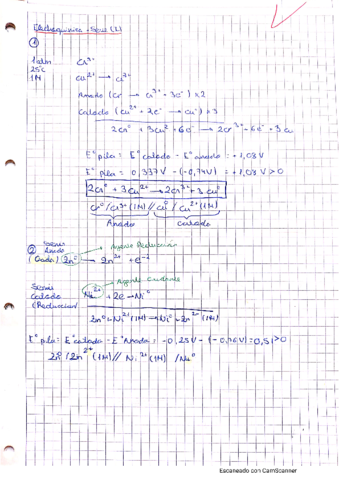 Electroquímica - Serie (2)
①
1 atm Cr³⁺
25°C Cu²⁺ → Cu²⁺
1M Anodo (Cr → Cr³⁺ + 3e⁻) x2
Catodo (Cu²⁺ + 2e⁻ → Cu⁰) x3
2Cr⁰ + 3Cu²⁺ 6e⁻ → 2Cr³⁺ 6e⁻ 3Cu
E° pila = E° catodo - E° anodo = +1,08 V
E° pila = 0,337V - (-0,74V) = +1,08 V > 0
2Cr⁰ + 3Cu²⁺ → 2Cr³⁺ + 3Cu⁰
Cr⁰ / Cr³⁺ (1M) // Cu⁰ / Cu²⁺ (1M)
Anodo catodo
② Semi Anodo → Agente Reducción
Zn⁰ → Zn²⁺ + e⁻
Semi → Agente
Catodo Ni²⁺ + 2e → Ni⁰
(Reducción
Zn⁰ + Ni²⁺ (1M) → Ni⁰ + Zn²⁺ (1M)
E° pila = E° catodo - E° Anodo = -0,25V - (-0,76V) = 0,51 > 0
Zn⁰ / Zn²⁺ (1M) // Ni²⁺ (1M) / Ni⁰
Escaneado con CamScanner